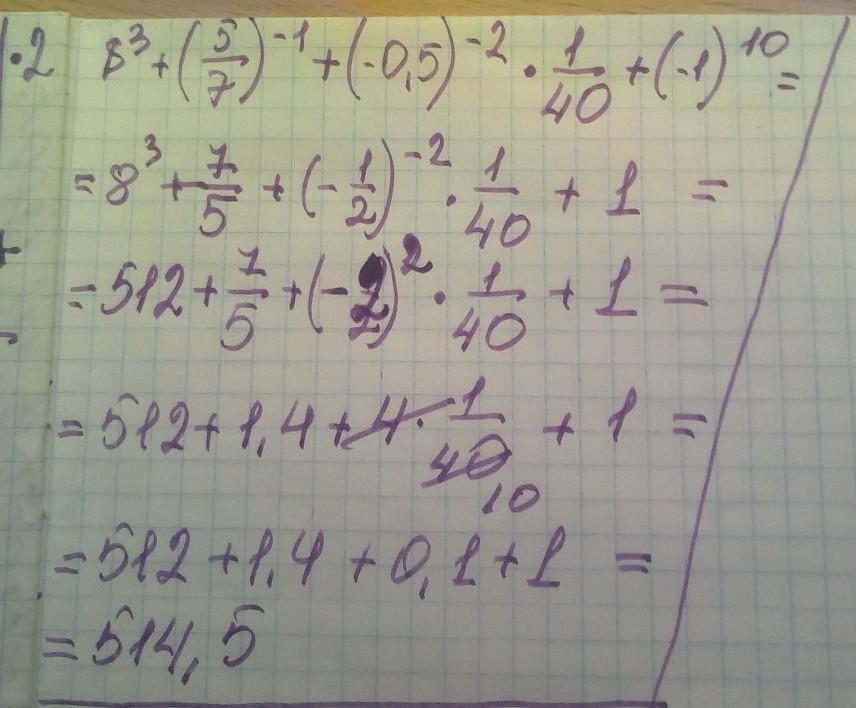 ·2 8³+(5/7)⁻¹+(-0,5)⁻²·1/40+(-1)¹⁰=
=8³+7/5+(-1/2)⁻²·1/40+1=
=512+7/5+(-2)²·1/40+1=
=512+1,4+4·1/40+1=
10
=512+1,4+0,1+1=
=514,5